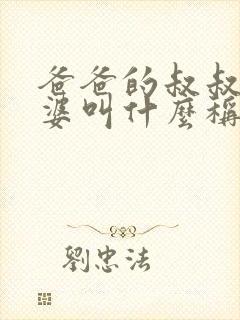 爸爸的叔叔
婆叫什麼稱
劉忠法